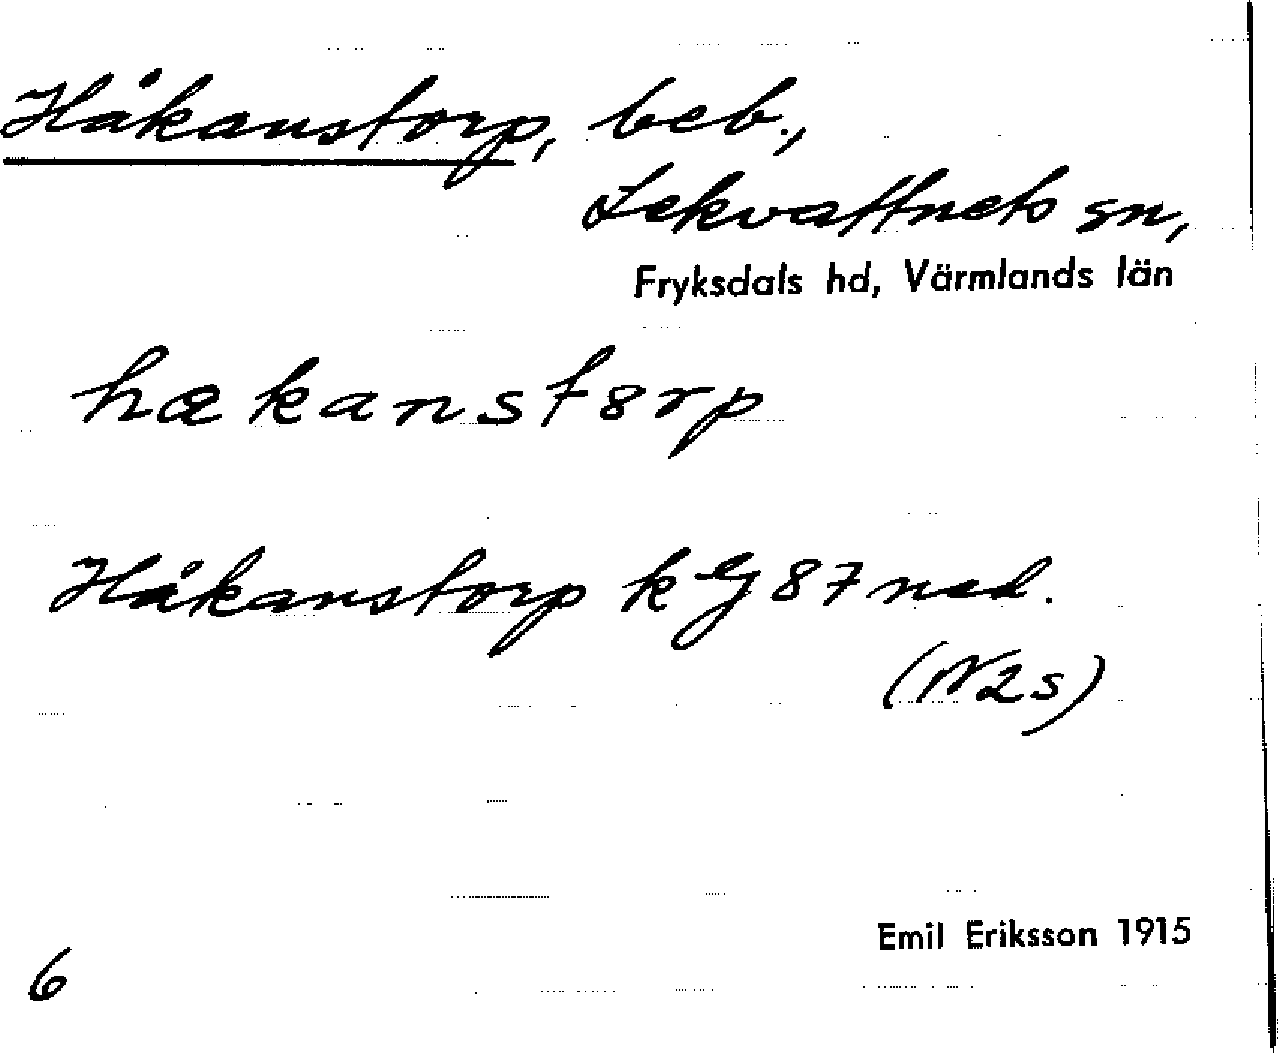 Håkanstorp, beb.,
Lekvattnets sn,
Fryksdals hd, Värmlands län
hækanst8rp
Håkanstorp k
87 ned.
(N2s)
Emil Eriksson 1915
6